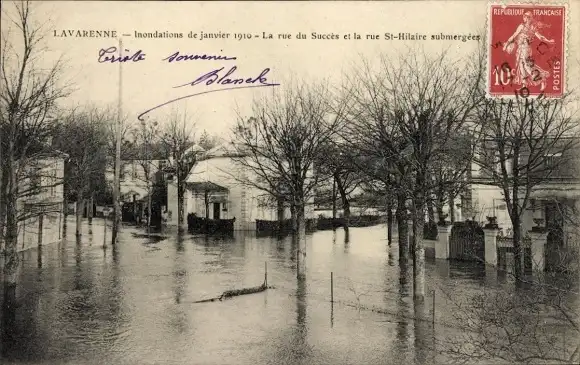 LAVARENNE — Inondations de janvier 1910 - La rue du Succès et la rue St-Hilaire submergées
Triste souvenir
Blanche
REPUBLIQUE FRANÇAISE
10c POSTES